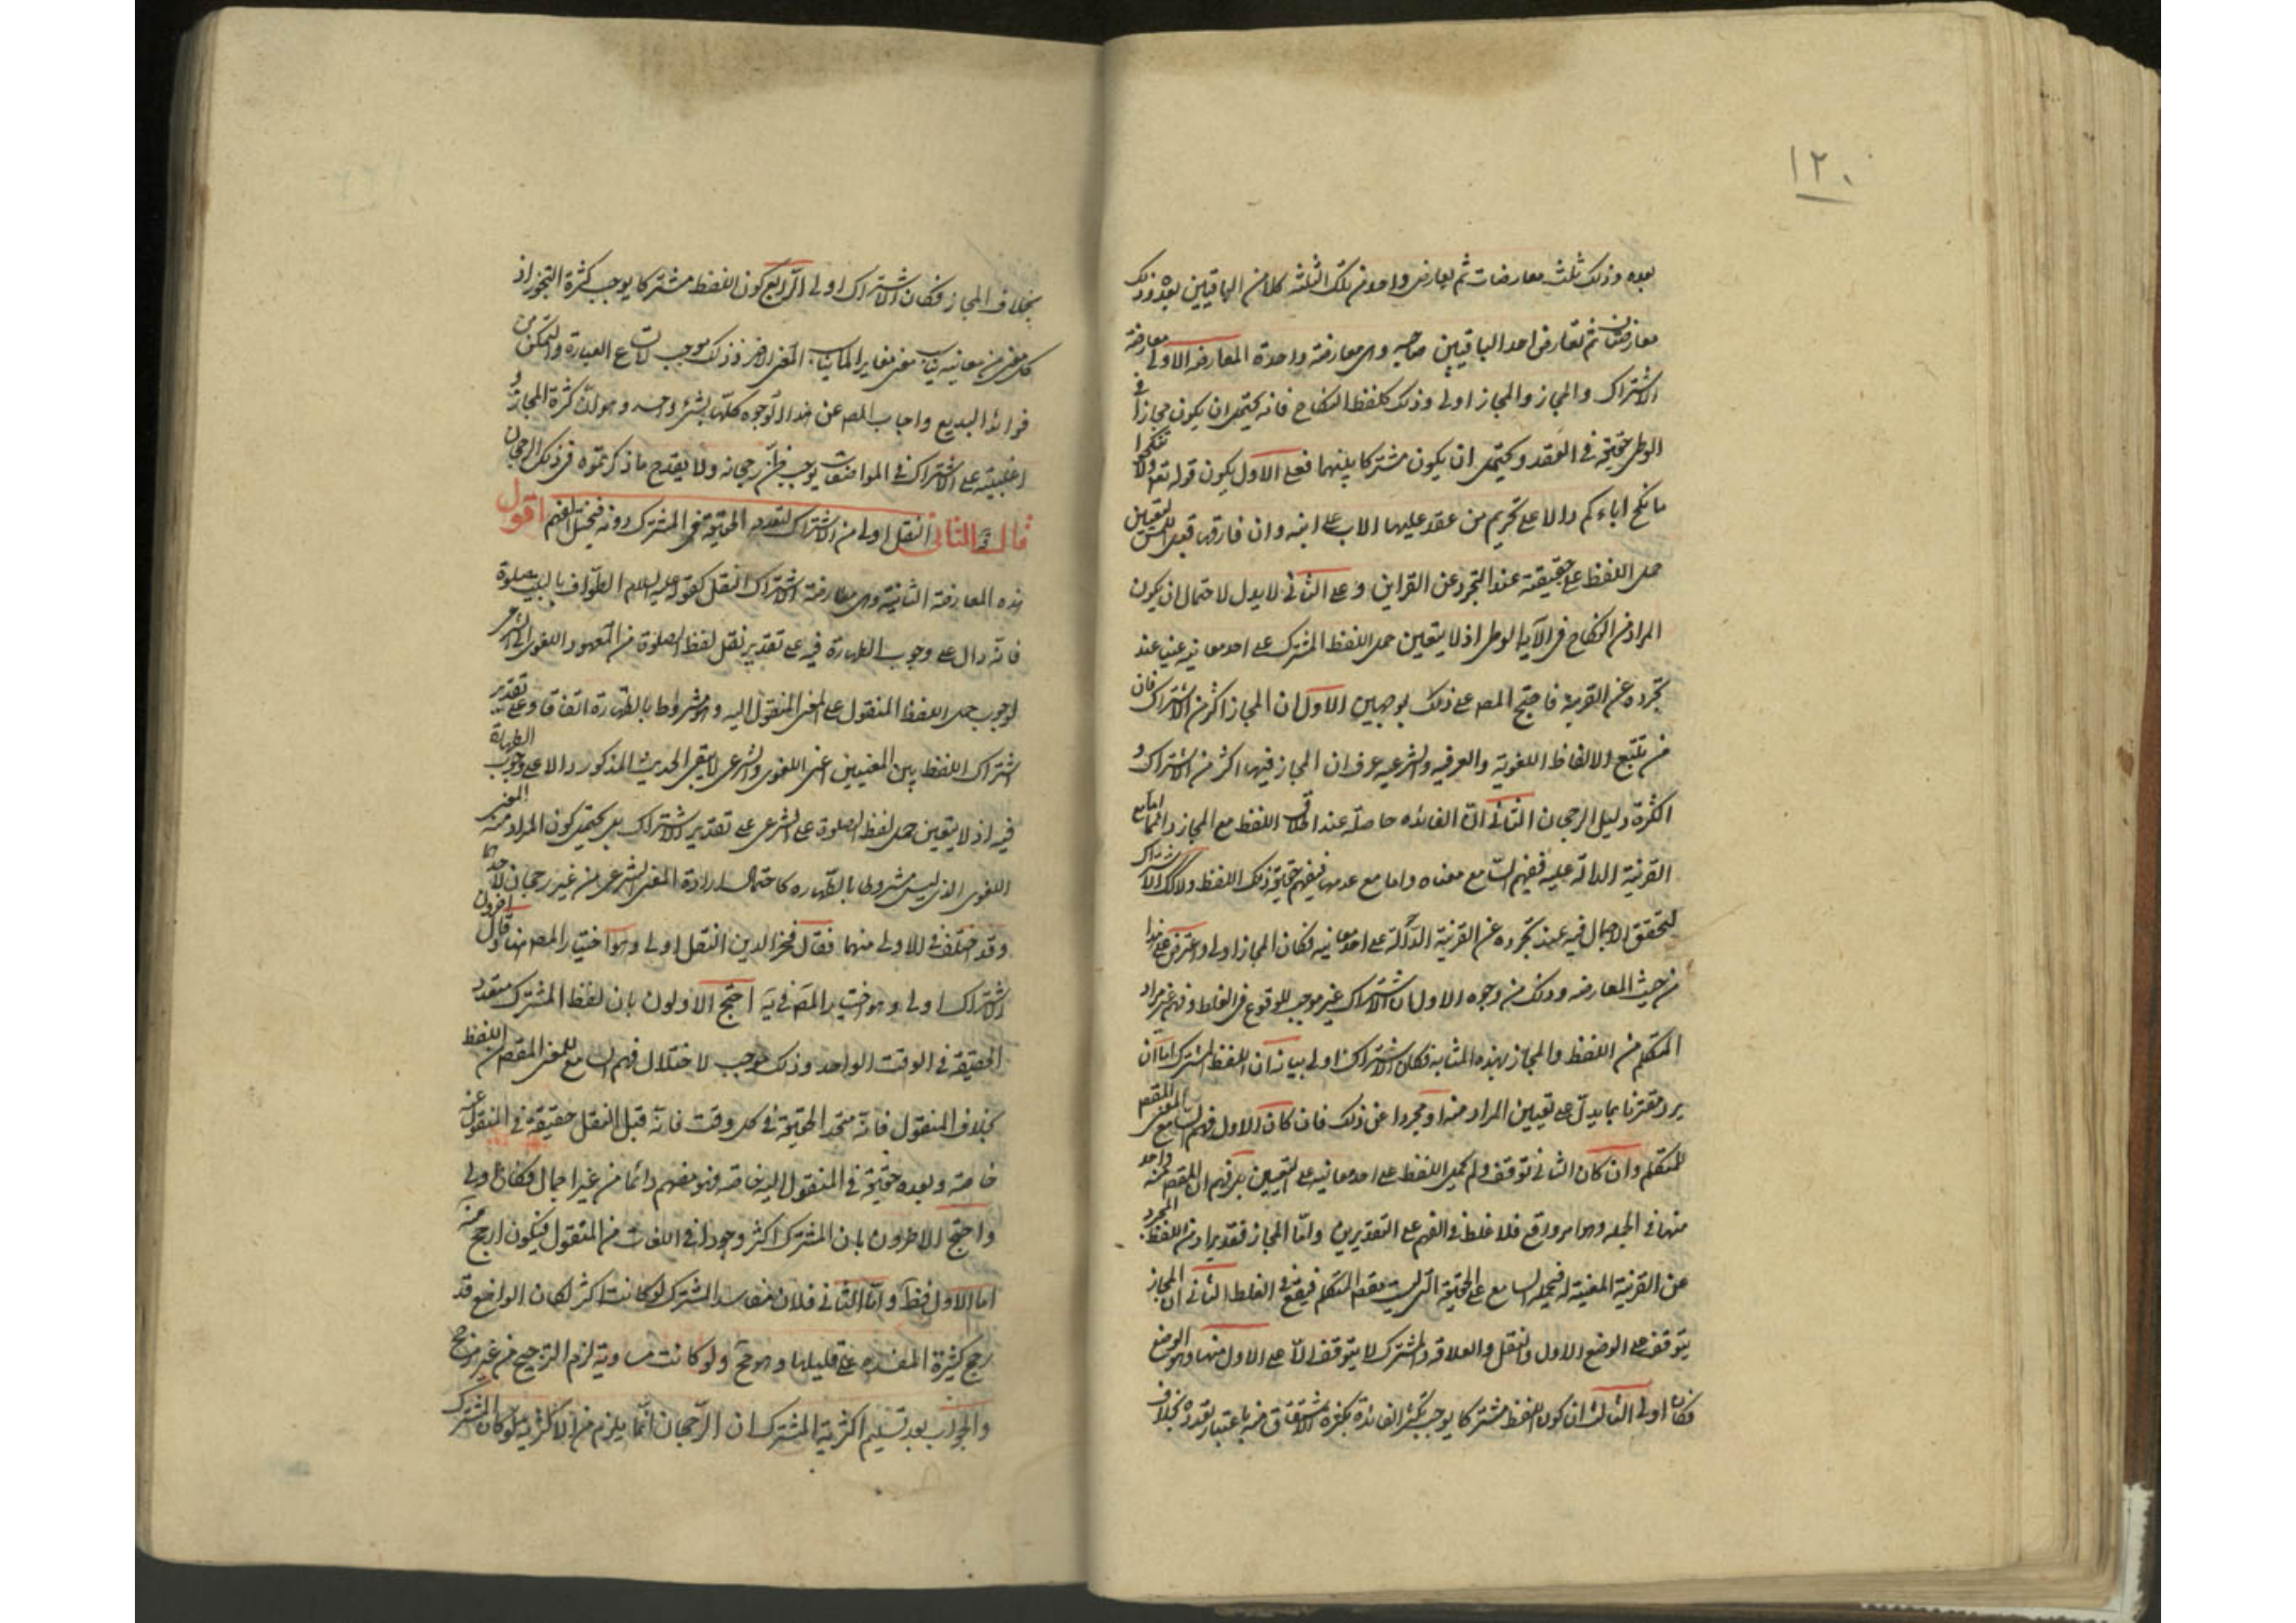 ١٢٠
بعده وذلك ثلث معارضات ثم يعارض واحد من تلك الثلثة كلا من الباقيين بعده وذلك
معارضتان ثم تعارض احد الباقيين صاحبه وهى معارضة واحدة المعارضه الاولى معارضة
الاشتراك والمجاز والمجاز اولى وذلك كلفظ النكاح فانه يحتمل ان يكون مجازا فى
الوطى حقيقة فى العقد ويحتمل ان يكون مشتركا بينهما فعلى الاول يكون قوله تعه ولا تنكحوا
ما نكح اباءكم دالا على تحريم من عقد عليها الاب على ابنه وان فارقها قبل المس لتعيين
حمل اللفظ على حقيقته عند التجرد عن القراين وعلى الثانى لا يدل لاحتمال ان يكون
المراد من النكاح فى الآية الوطى اذ لا يتعين حمل اللفظ المشترك على احد معانيه عينا عند
تجرده عن القرينة فاحتج المصـ على ذلك بوجهين الاول ان المجاز اكثر من الاشتراك فان
من تتبع الالفاظ اللغوية والعرفيه والشرعيه عرف ان المجاز فيها اكثر من الاشتراك و
الكثرة دليل الرجحان الثانى ان الفائده حاصلة عند اطلاق اللفظ مع المجاز دائما اما مع
القرنية الدالة عليه فيفهم السامع معناه واما مع عدمها فيفهم حقيقة ذلك اللفظ ولا كك الاشتراك
لتحقق الاجمال فيه عند تجرده عن القرنية الدالة على احد معانيه فكان المجاز اولى واعترض على هذا
من حيث المعارضه وذلك من وجوه الاول ان الاشتراك غير موجب للوقوع فى الغلط وفهم غير مراد
المتكلم من اللفظ والمجاز بهذه المثابه فكان الاشتراك اولى بيانه ان اللفظ المشترك اما ان
يرد مقترنا بما يدل على تعيين المراد منه او مجردا عن ذلك فان كان الاول فهم السامع المعنى المقصـ
للمتكلم وان كان الثانى توقف ولم يحمل اللفظ على احد معانيه على التعيين بل فهم ان المقصـ منه واحد
منها فى الجمله وهو امر واقع فلا غلط فى الفهم على التقديرين واما المجاز فتقدير ارادته من اللفظ المجرد
عن القرنية المعينة له فيحمله السامع على الحقيقة التى ليست مقصـ المتكلم فيقع فى الغلط الثانى ان المجاز
يتوقف على الوضع الاول والنقل والعلاقه والمشترك لا يتوقف الا على الاول منها وهو الوضع
فكان اولى الثالث ان كون اللفظ مشتركا يوجب تكثر الفائدة بكثرة الاشتقاق منه باعتبار تعدده بخلاف
بخلاف المجاز فكان الاشتراك اولى الرابع كون اللفظ مشتركا يوجب كثرة التجوز اذ
كل معنى من معانيه يناسب معنى مغاير لما يناسبه المعنى الاخر وذلك موجب لاتساع العبارة والتمكن من
فوائد البديع واجاب المصـ عن هذا الوجوه كلها بشىء واحد وهو ان كثرة المجاز و
اغلبيته على الاشتراك فى المواضعات يوجب ظن رجحانه ولا يقدح ما ذكرتموه فى ذلك الرجحان
قال والثانى النقل اولى من الاشتراك لتعدد الحقيقة فى المشترك دونه فيختل الفهم اقول
هذه المعارضة الثانية وهى معارضة الاشتراك النقل كقوله عليه السلام الطواف بالبيت صلوة
فانه دال على وجوب الطهارة فيه على تقدير نقل لفظ الصلوة من المعهود اللغوى الى الشرعى
لوجوب حمل اللفظ المنقول على المعنى المنقول اليه وهو مشروط بالطهارة اتفاقا وعلى تقدير
اشتراك اللفظ بين المعنيين اعنى اللغوى والشرعى لا يبقى الحديث المذكور دالا على وجوب الطهارة
فيه اذ لا يتعين حمل لفظ الصلوة على الشرعى على تقدير الاشتراك بل يحتمل كون المراد منه المعنى
اللغوى الذى ليس مشروطا بالطهاره كاحتمال ارادة المعنى الشرعى من غير رجحان لاحدهما
وقد اختلف فى الاولى منهما فقال فخر الدين النقل اولى وهو اختيار المصـ هنا وقال اخرون
الاشتراك اولى وهو اختيار المصـ فى يه احتج الاولون بان لفظ المشترك متعدد
الحقيقة فى الوقت الواحد وذلك موجب لاختلال فهم السامع للمعنى المقصـ من اللفظ
بخلاف المنقول فانه متحد الحقيقة فى كل وقت فانه قبل النقل حقيقة فى المنقول عنه
خاصة وبعده حقيقة فى المنقول اليه خاصة فهو مفهم دائما من غير اجمال فكان اولى
واحتج الاخرون بان المشترك اكثر وجودا فى اللغات من المنقول فيكون ارجح منه
اما الاول فظ واما الثانى فلان مفاسد المشترك لو كانت اكثر لكان الواضع قد
رجح كثيرة المفسده على قليلها وهو مح ولو كانت مساوية لزم الترجيح من غير مرجح
والجواب بعد تسليم اكثرية المشترك ان الرجحان انما يلزم من الاكثرية لو كان المشترك